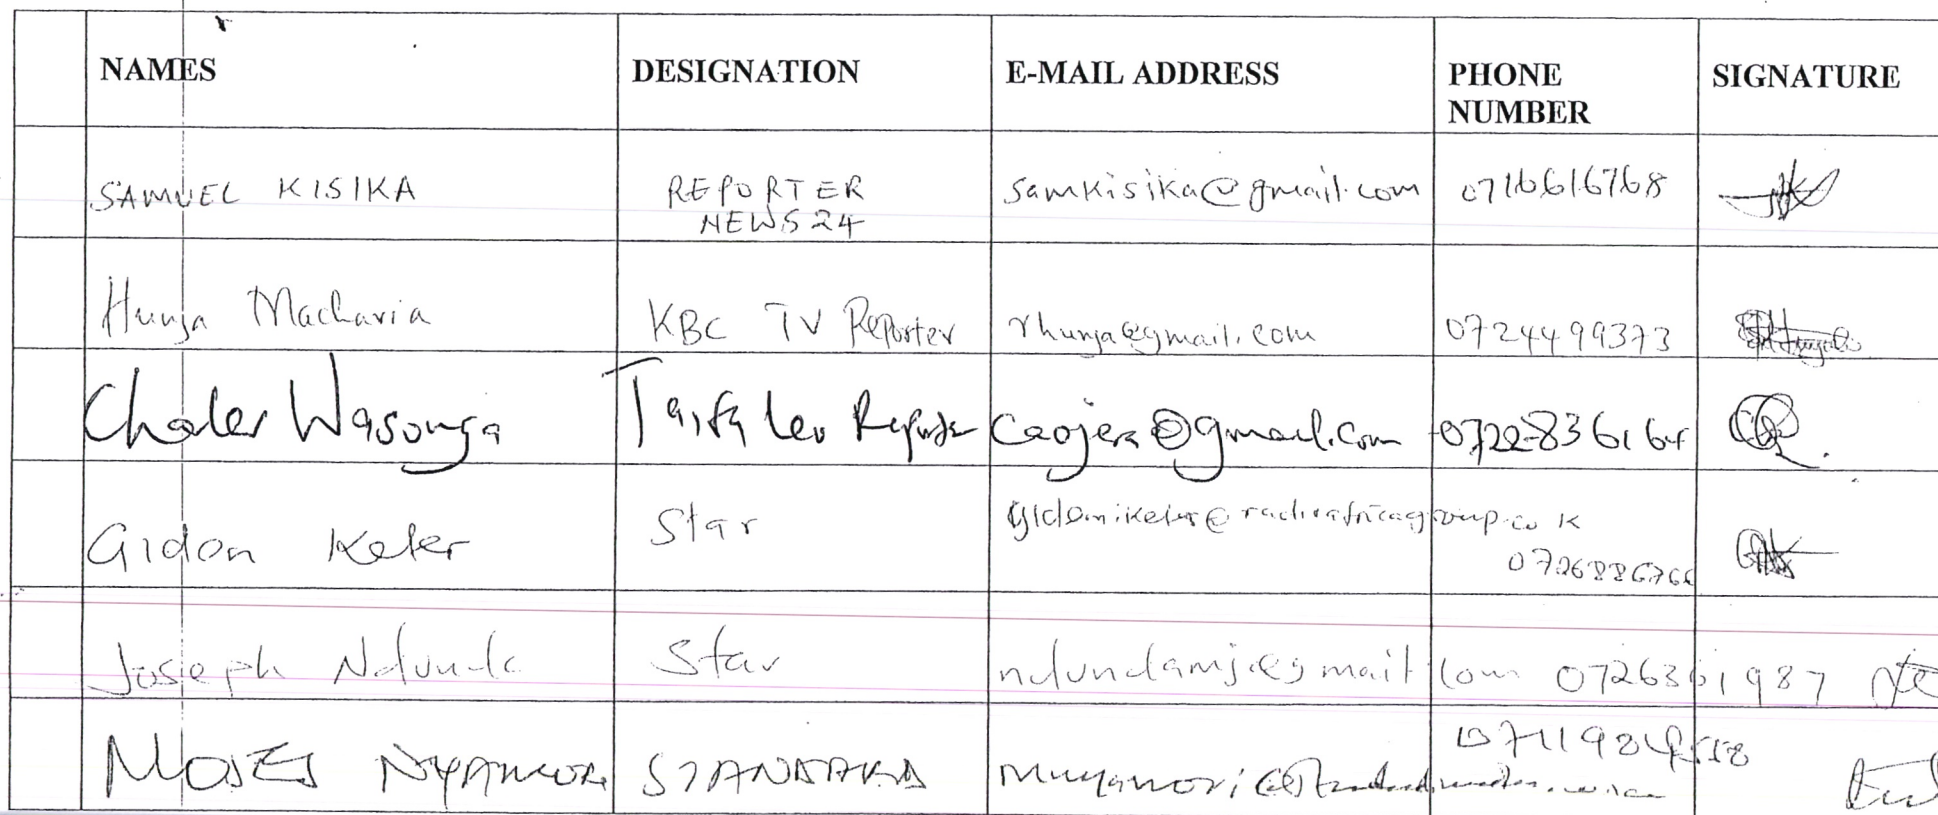 NAMES DESIGNATION E-MAIL ADDRESS PHONE NUMBER SIGNATURE
SAMUEL KISIKA REPORTER NEWS24 samkisika@gmail.com 0716616768
Hunja Macharia KBC TV Reporter rhunja@gmail.com 0724499373
Charles Wasonga Taifa Leo Reporter caojera@gmail.com 0722-836164
Gidon Keter Star 
Joseph Ndunda Star ndundamj@gmail com 0726361987
MOSES NYAMORI STANDARD